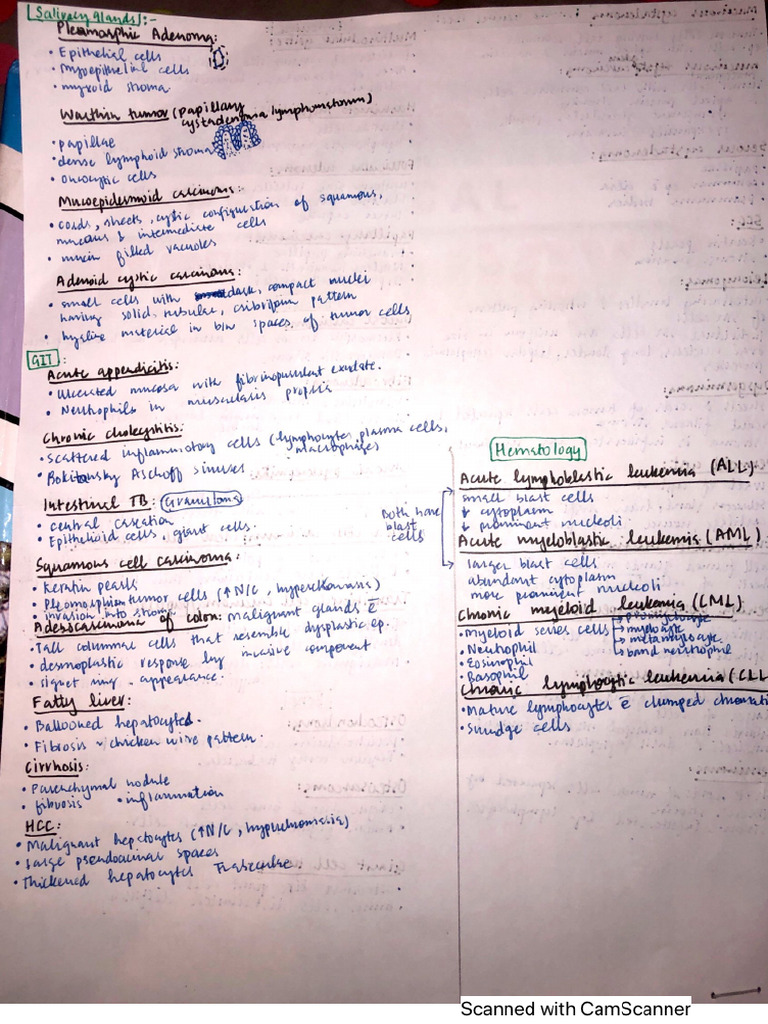 Salivary glands :-
Pleomorphic Adenoma:
• Epithelial cells
• Myoepithelial cells
• myxoid stroma
Warthin tumor (papillary
cystadenoma lymphomatosum)
• papillae
• dense lymphoid stroma
• Oncocytic cells
Mucoepidermoid carcinoma:
• cords, sheets, cystic configuration of squamous,
mucous & intermediate cells
• mucin filled vacuoles
Adenoid cystic carcinoma:
• small cells with dark, compact nuclei
having solid, tubular, cribriform pattern
• hyaline material in b/w spaces of tumor cells
GIT:
Acute appendicitis:
• Ulcerated mucosa with fibrinopurulent exudate.
• Neutrophils in muscularis propria
Chronic cholecystitis:
• scattered inflammatory cells (lymphocyte, plasma cells,
macrophages
• Rokitansky Aschoff sinuses
Intestinal TB: Granuloma
• central caseation
• Epithelioid cells, giant cells.
Squamous cell carcinoma:
• Keratin pearls
• Pleomorphism tumor cells (↑N/C, hyperchromasia)
• invasion into stroma
Adenocarcinoma of colon: malignant glands c̄
• Tall columnar cells that resemble dysplastic ep.
• desmoplastic response by invasive component
• signet ring appearance.
Fatty liver:
• Ballooned hepatocytes.
• Fibrosis ~ chicken wire pattern.
Cirrhosis:
• Parenchymal nodule
• fibrosis • inflammation
HCC:
• Malignant hepatocytes (↑N/C, hyperchromasia)
• Large pseudoacinal spaces
• Thickened hepatocytes Trabeculae
Hematology
Acute lymphoblastic leukemia (ALL)
small blast cells
↓ cytoplasm
↓ prominent nucleoli
Both have
blast
cells
Acute myeloblastic leukemia (AML)
larger blast cells
abundant cytoplasm
more prominent nucleoli
Chronic myeloid leukemia (CML)
• Myeloid series cells → promyelocyte
→ myelocyte
→ metamyelocyte
→ band neutrophil
• Neutrophil
• Eosinophil
• Basophil
Chronic lymphocytic leukemia (CLL
• Mature lymphocytes c̄ clumped chromati
• Smudge cells
Scanned with CamScanner